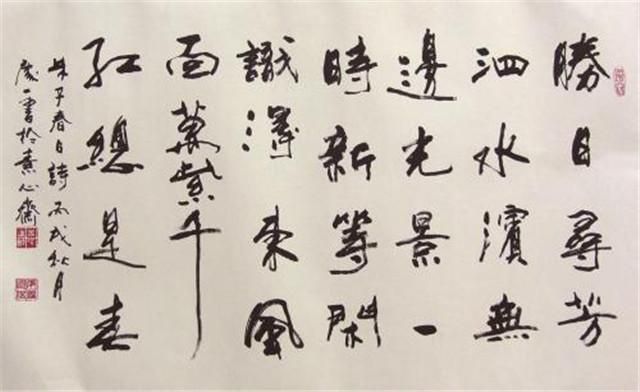 勝日尋芳
泗水濱無
邊光景一
時新等閑
識得東風
面萬紫千
紅總是春
朱子春日詩 丙戌秋月
一書於心齋